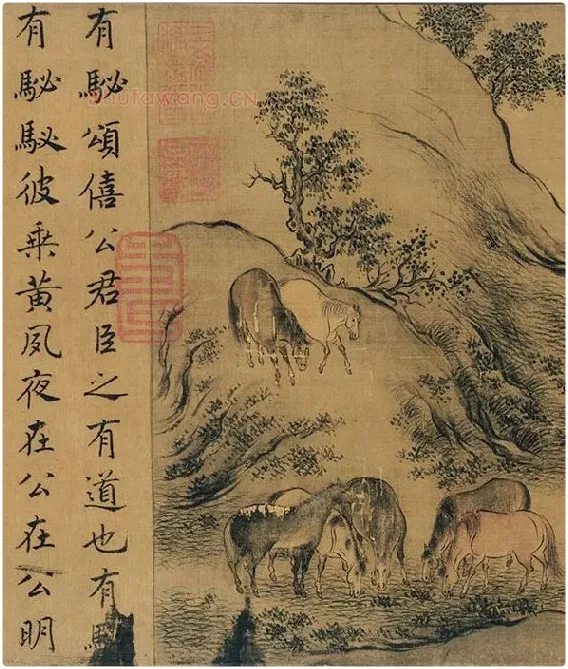 有駜頌僖公君臣之有道也有
有駜駜彼乘黃夙夜在公在公明
shufawang.CN